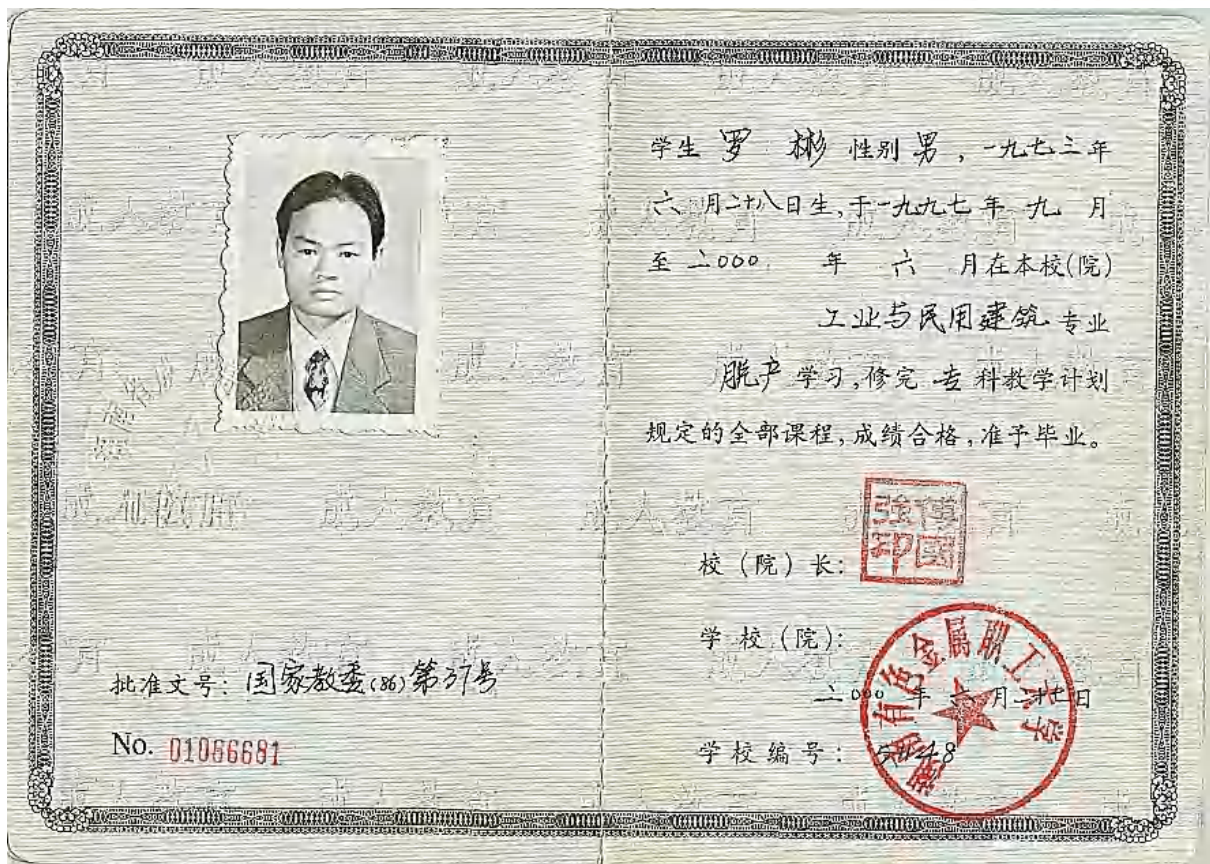 批准文号：国家教委(86)第37号
No. 01066691
学生 罗 彬 性别 男，一九七三年
六 月二十八日生，于一九九七年 九 月
至 二000 年 六 月在本校(院)
工业与民用建筑 专业
脱产 学习，修完 专 科教学计划
规定的全部课程，成绩合格，准予毕业。
校（院）长：
傅国强印
学校（院）：
湖南有色金属职工大学
二000 年 六 月二十七日
学校编号：
成人教育